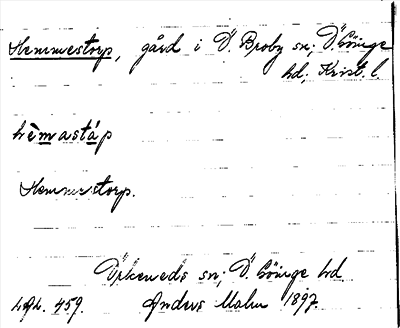 Hemmestorp, gård i Ö. Broby sn; Ö. Göinge
hd; Krist. l.
hèmastáp
Hemmestorp.
Örkeneds sn; Ö. Göinge hd
459. Anders Malm 1897.